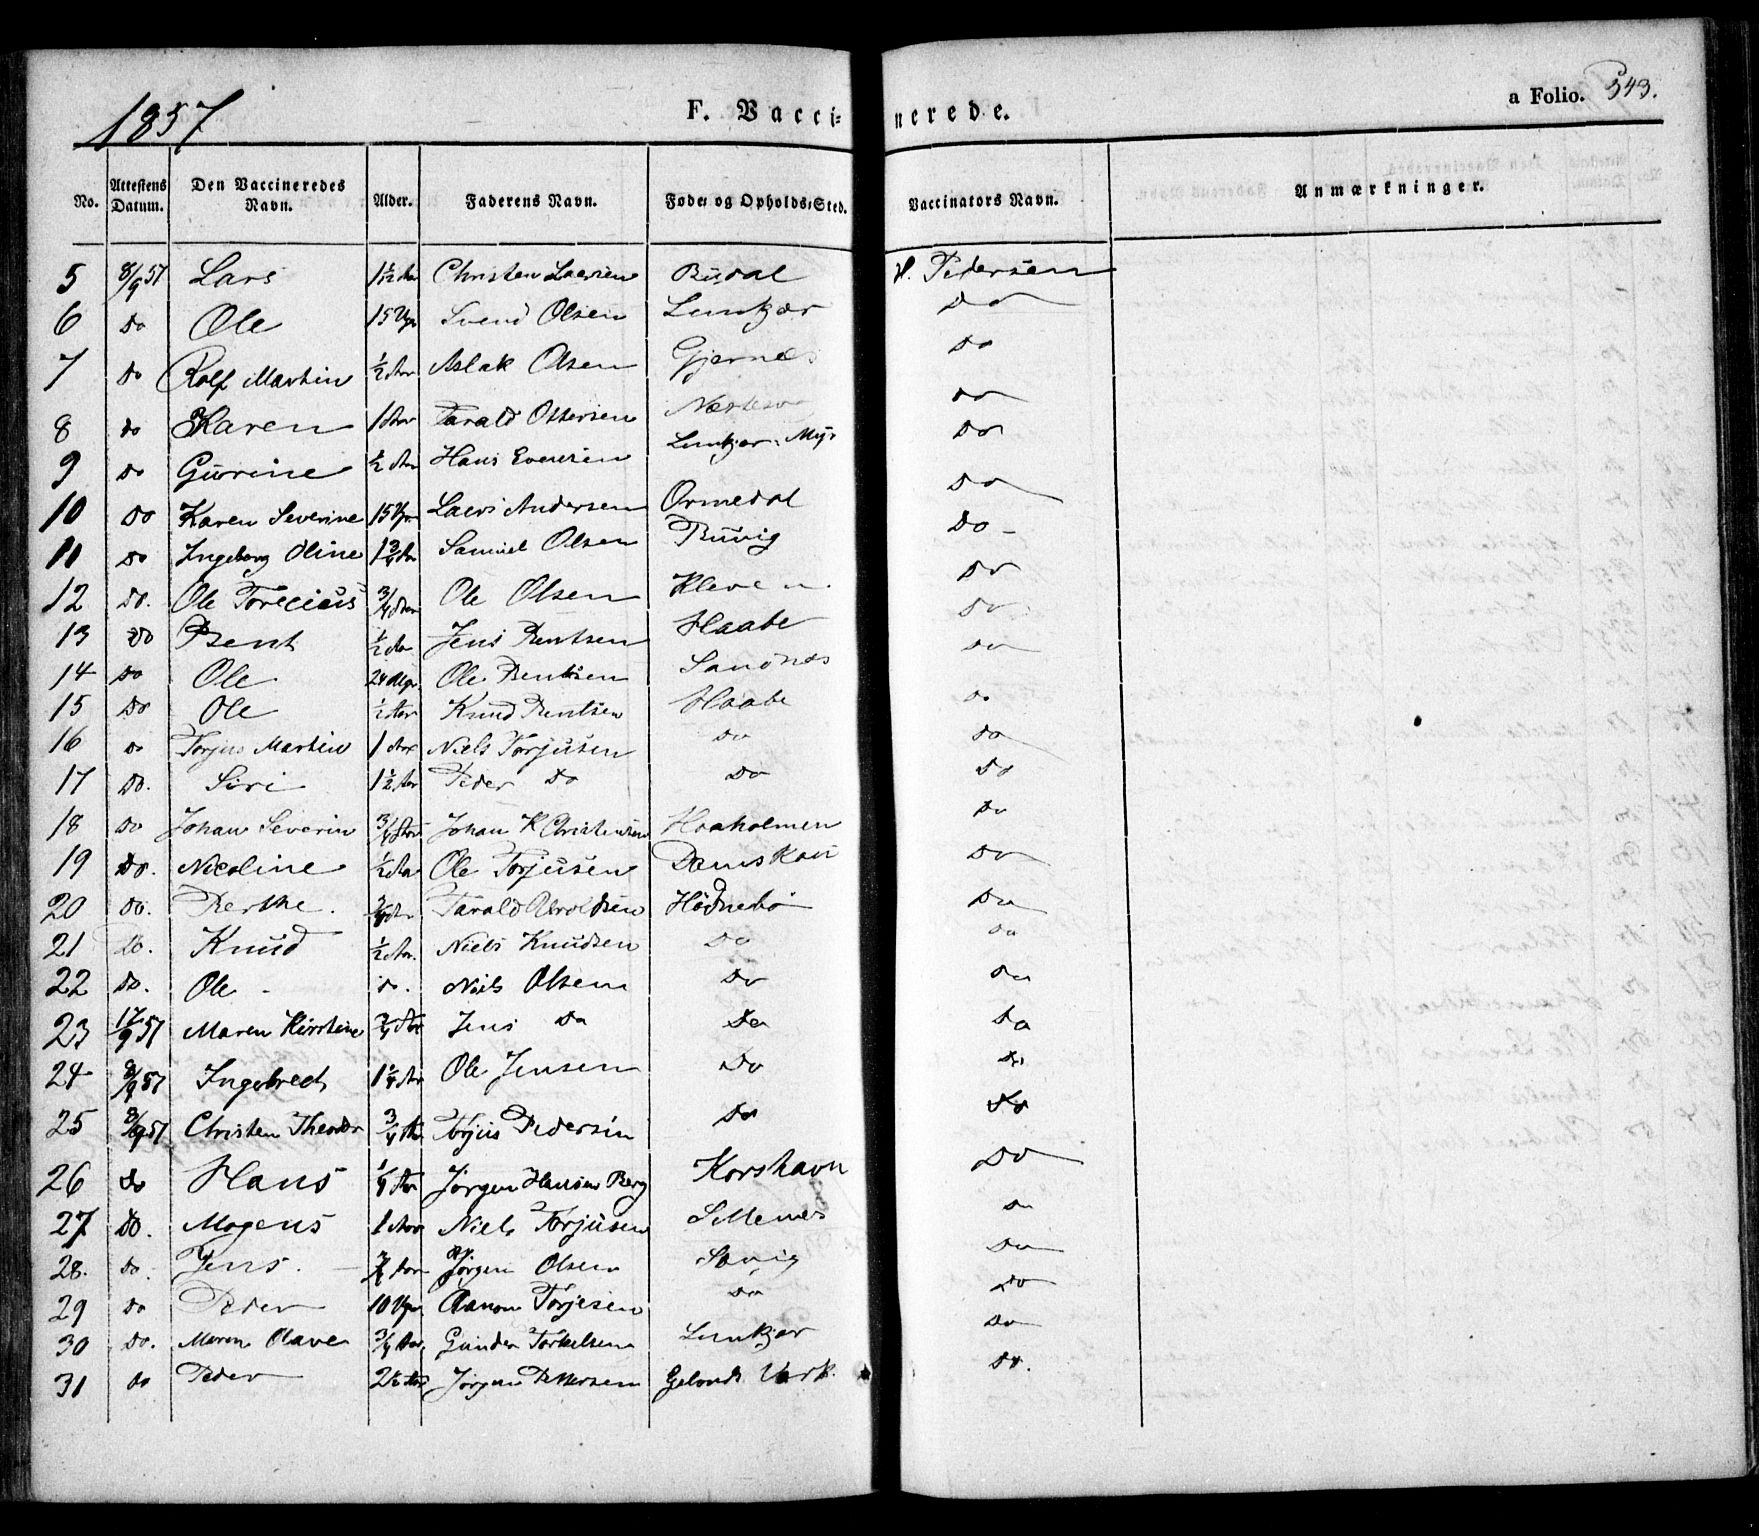 1857 F. Vaccinerede. a Folio. 343.
No. Attestens Datum. Den Vaccineredes Navn. Alder. Faderens Navn. Føde- og Opholds-Sted. Vaccinators Navn. Anmærkninger.
5 8/9 57 Lars 1½ Aar Christen Larsen Budal H. Pedersen
6 Do Ole 15 Uger Svend Olsen Lunkjær Do
7 Do Rolf Martin ½ Aar Aslak Olsen Gjernes Do
8 Do Karen 1 Aar Tarald Ottersen Do
9 Do Gurine ½ Aar Hans Evensen Lunkjær Myr Do
10 Do Karen Severine 15 Uger Lars Andersen Ormedal Do
11 Do Ingeborg Oline 1¾ Aar Samuel Olsen Buvig Do -
12 Do. Ole Torecius ¾ Aar Ole Olsen Kleven Do
13 Do Bent ½ Aar Jens Bentsen Haabe Do
14 Do Ole 24 Uger Ole Bentsen Sandnæs Do
15 Do Ole ½ Aar Knud Bentsen Haabe Do
16 Do Torjus Martin 1 Aar Niels Torjusen Do Do
17 Do. Siri 1½ Aar Peder Do Do Do
18 Do Johan Severin ¾ Aar Johan K Christensen Haaholmen Do
19 Do. Nicoline ½ Aar Ole Torjusen Do
20 Do. Berthe. ¾ Aar Tarald Aroldsen Hødnebø Do
21 Do. Knud ½ Aar. Niels Knudsen Do Do
22 Do. Ole - do. Niels Olsen Do Do
23 17/9 57 Maren Kirstine ¾ Aar Jens Do Do Do
24 8/9 57 Ingebrect 1¼ Aar Ole Jensen Do Do
25 8/9 57 Christen Theodor ¾ Aar Torjus Pedersen Do Do
26 Do Hans ¼ Aar Jørgen Hansen Berg Korshavn Do
27 Do. Mogens 1 Aar Niels Torjusen Sellenes Do
28. Do. Jens. ¾ Aar Jørgen Olsen Savig Do
29 Do Peder 10 Uger Aanon Torjesen Do Do
30 Do. Maren Olave ¾ Aar. Gunder Torkelsen Lunkjær Do
31 Do Peder 2½ Aar Jørgen Pettersen Værk. Do.